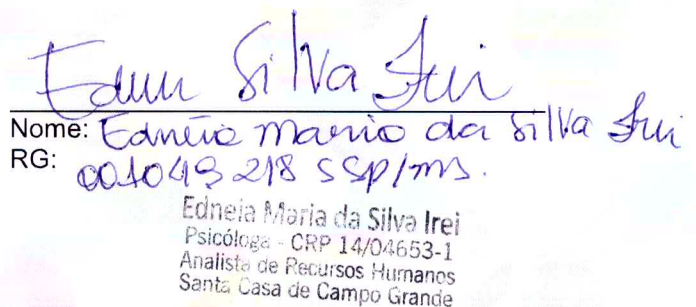 Edneia Silva Irei
Nome: Edneia Maria da Silva Irei
RG: 001049218 SSP/MS.
Edneia Maria da Silva Irei
Psicóloga - CRP 14/04653-1
Analista de Recursos Humanos
Santa Casa de Campo Grande